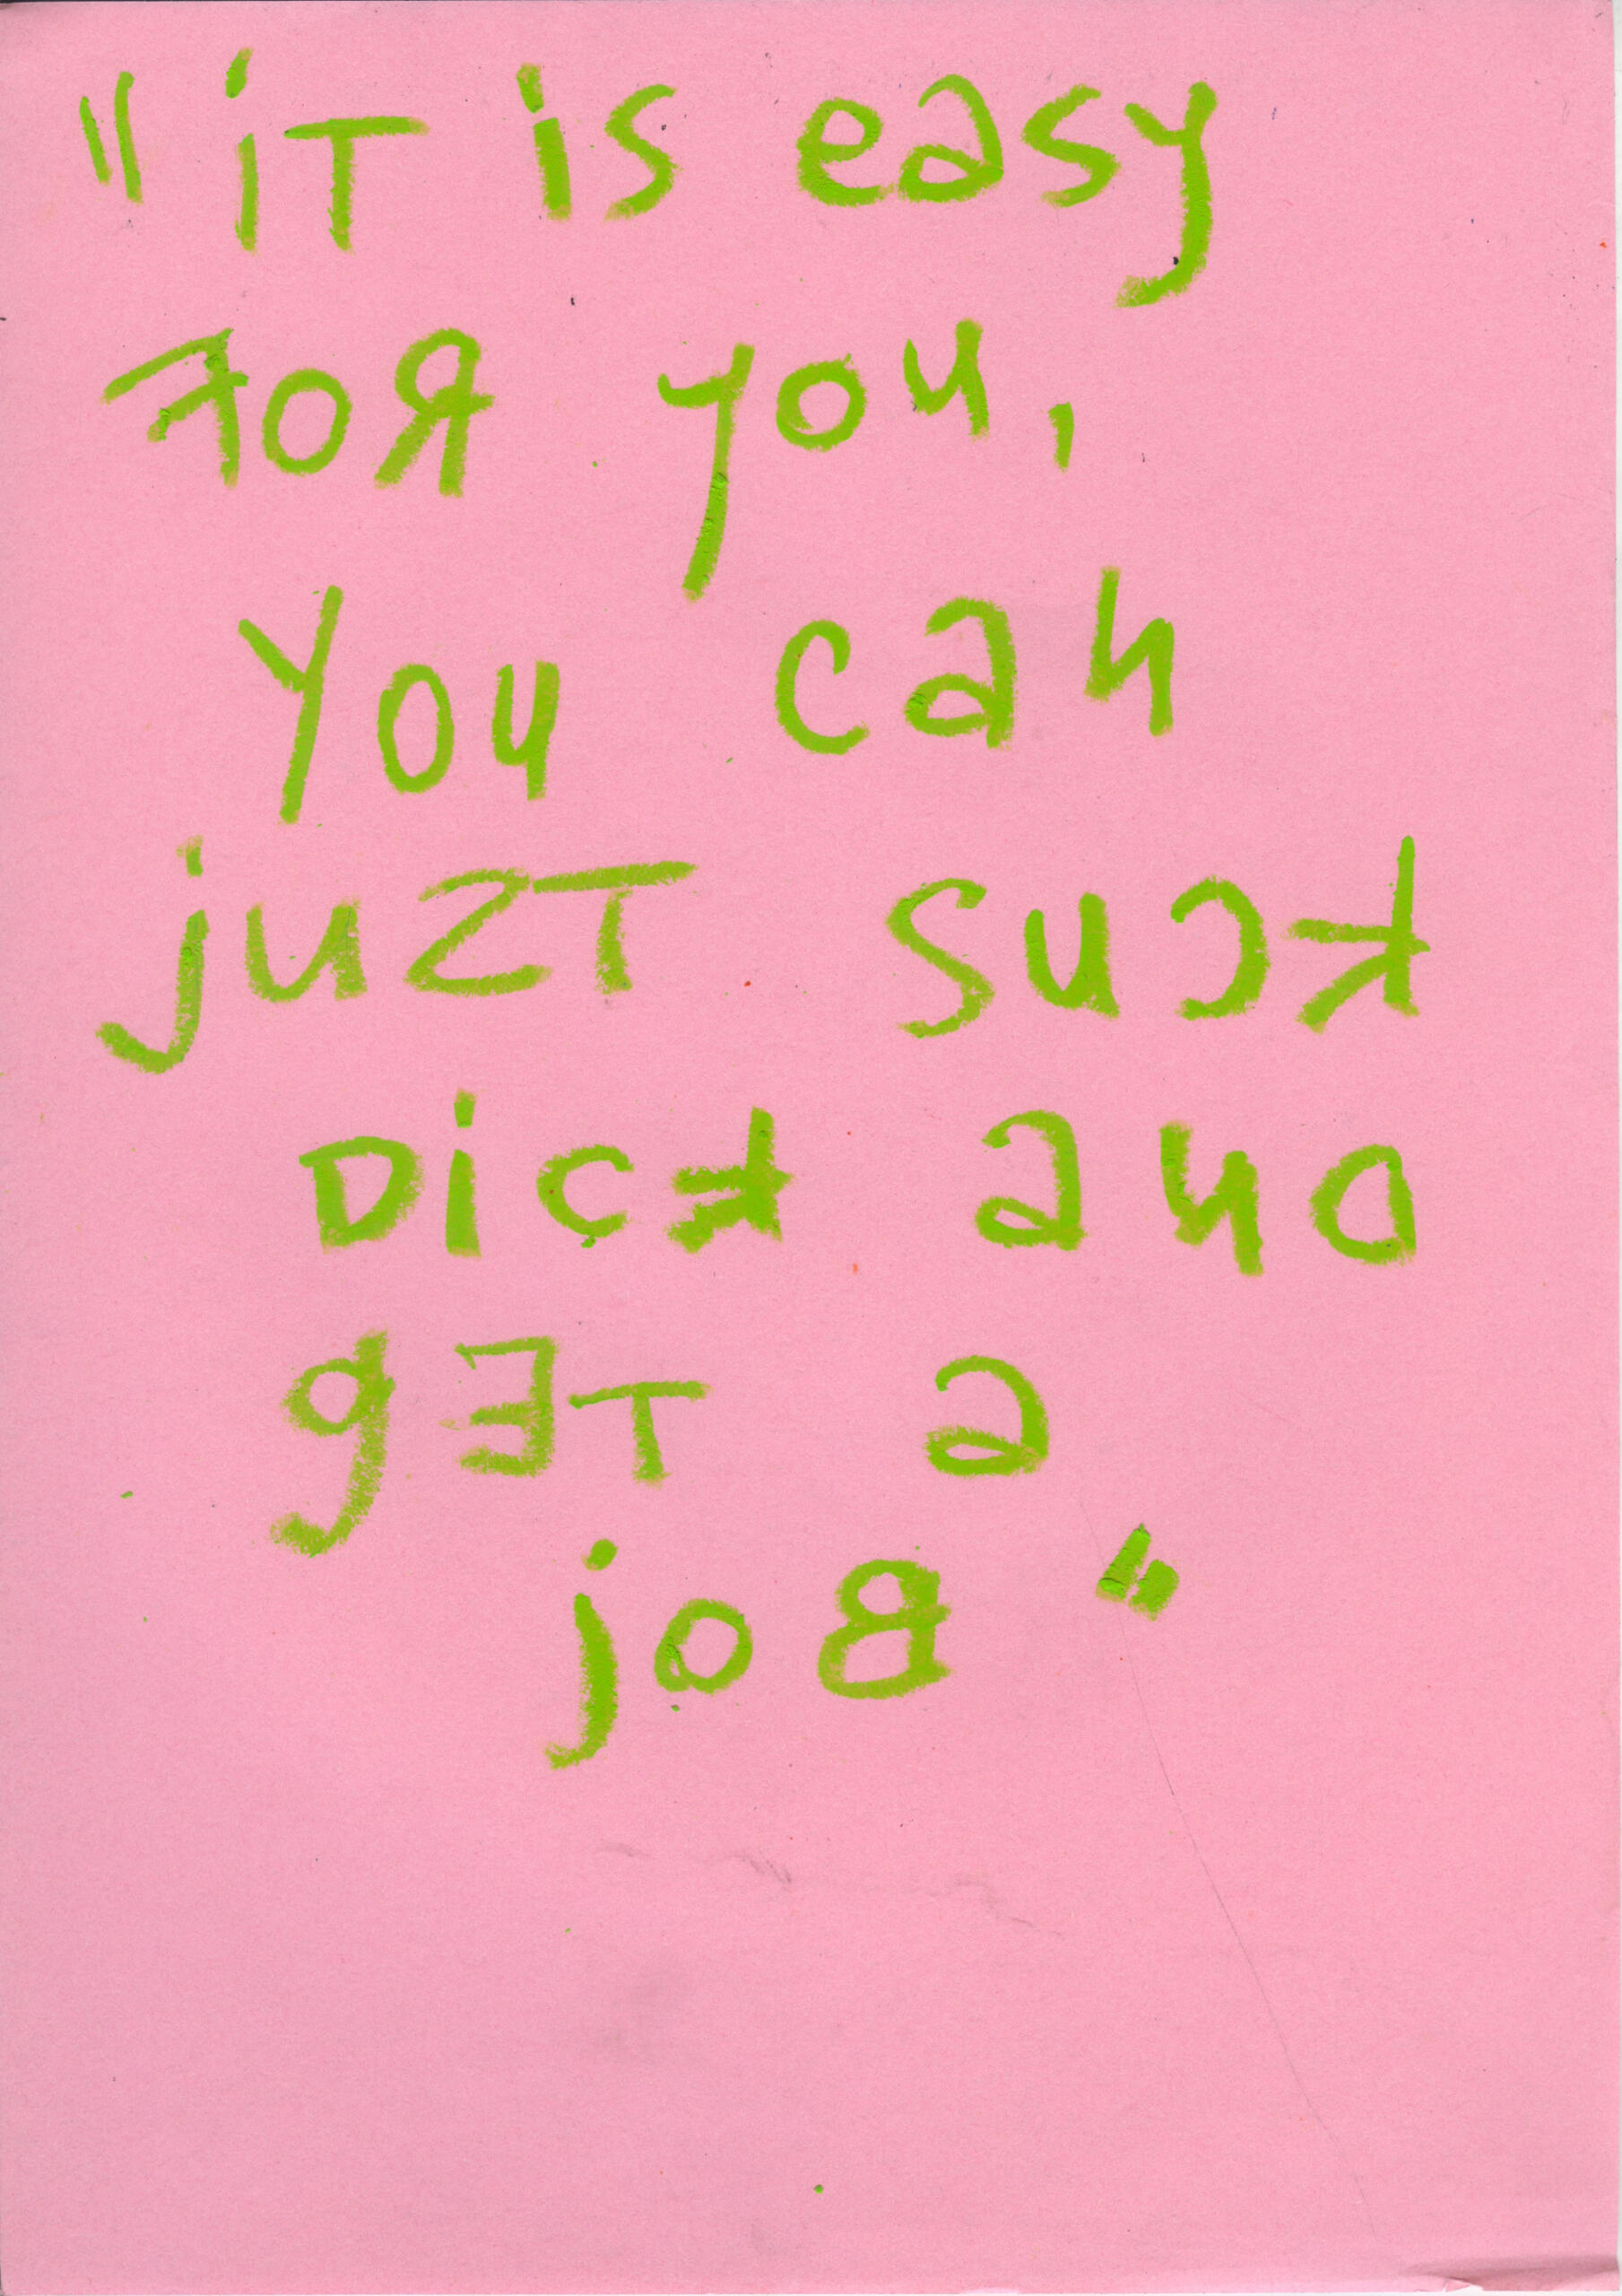 "iT is easy
FOR you,
you can
juST sucK
DicK anD
gET a
joB"